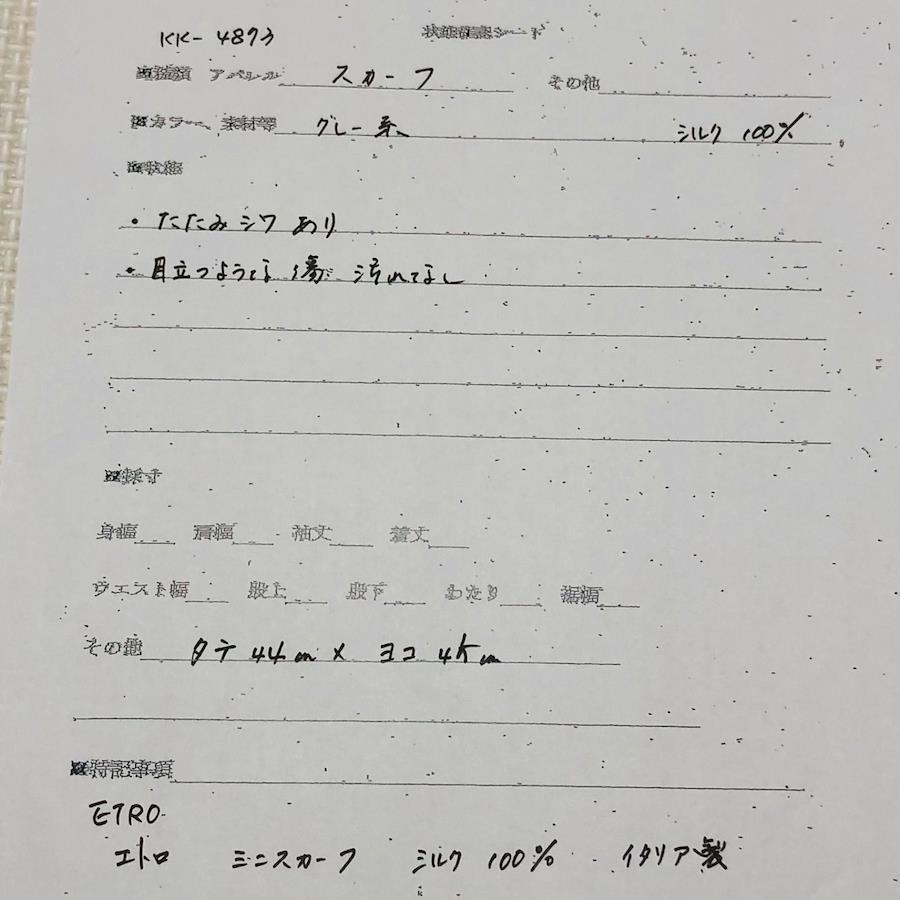 KK-4873 状態確認シート
アパレル スカーフ その他
カラー、素材等 グレー系 シルク 100%
■状態
・たたみシワ あり
・目立つような 傷 汚れてなし
■採寸
身幅 肩幅 袖丈 着丈
ウエスト幅 股上 股下 わたり 裾幅
その他 タテ 44cm × ヨコ
■特記事項
ETRO
エトロ ミニスカーフ シルク 100% イタリア製